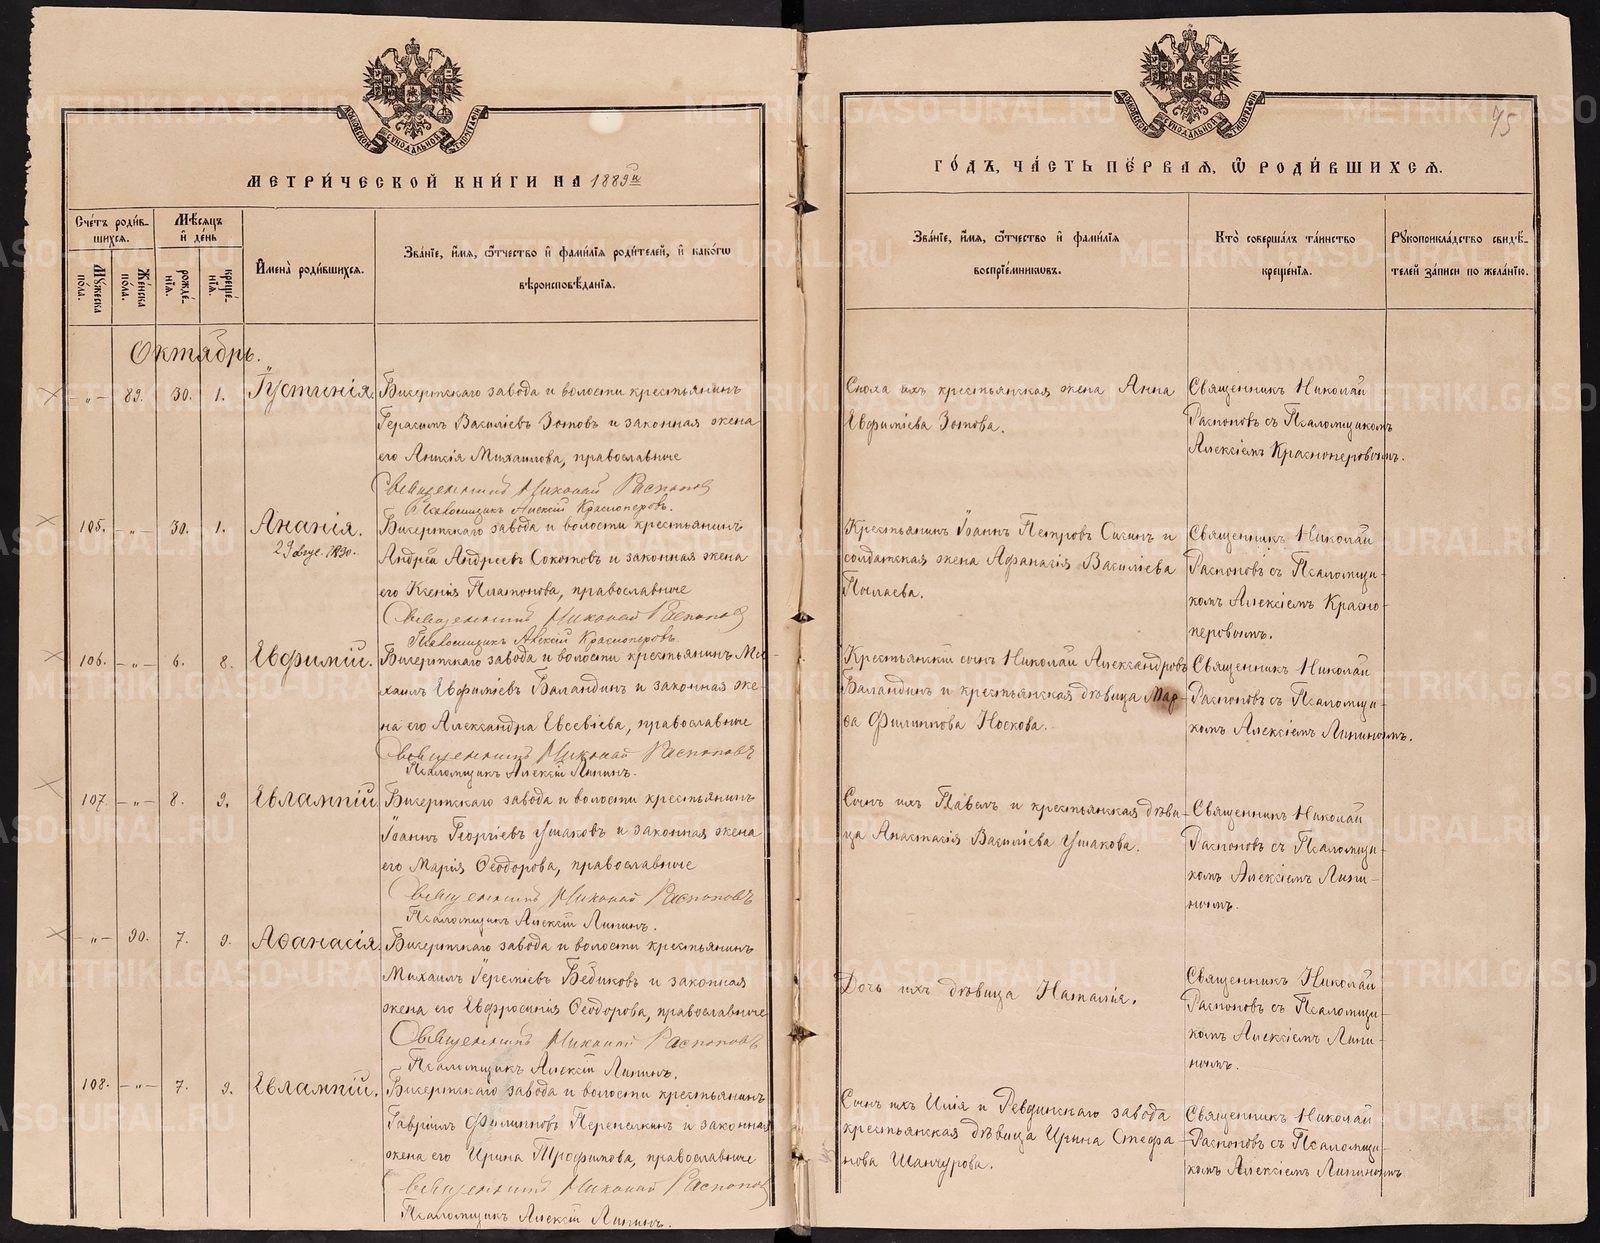 МЕТРИ́ЧЕСКОЙ КНИ́ГИ НА 1889й
Сче́тъ роди́в-
шихся.
Мѣ́сяцъ
и҆ де́нь
Му́жеска по́ла.
Же́нска по́ла.
рожде́нїя.
креще́нїя.
И҆мена̀ роди́вшихся.
Зва́нїе, и҆́мя, ѻ҆́тчество и҆ фами́лїя роди́телей, и҆ како́гѡ
вѣроисповѣ́данїя.
Октябрь.
-„- 89. 30. 1. Іустинія. Бисертскаго завода и волости крестьянинъ
Герасимъ Василіевъ Зотовъ и законная жена
его Анисія Михаилова, православные
Священникъ Николай Распоповъ
Псаломщикъ Алексій Красноперовъ.
105. -„- 30. 1. Ананія. Бисертскаго завода и волости крестьянинъ
29 1930.
Андрей Андреевъ и законная жена
его Ксенія Платонова, православные
Священникъ Николай Распоповъ
Псаломщикъ Алексій Красноперовъ
106. -„- 6. 8. Евфимій. Бисертскаго завода и волости крестьянинъ Ми-
хаилъ Евфиміевъ Баландинъ и законная же-
на его Александра Евсевіева, православные
Священникъ Николай Распоповъ
Псаломщикъ Алексій Липинъ.
107. -„- 8. 9. Евлампій Бисертскаго завода и волости крестьянинъ
Іоаннъ Георгіевъ Ушаковъ и законная жена
его Марія Ѳеодорова, православные
Священникъ Николай Распоповъ
Псаломщикъ Алексій Липинъ.
-„- 90. 7. 9. Аѳанасія. Бисертскаго завода и волости крестьянинъ
Михаилъ Іереміевъ Бѣдиковъ и законная
жена его Евфросинія Ѳеодорова, православные
Священникъ Николай Распоповъ
Псаломщикъ Алексій Липинъ.
108. -„- 7. 9. Евлампій. Бисертскаго завода и волости крестьянинъ
Гавріилъ Филипповъ Перепелкинъ и законная
жена его Ирина Трофимова, православные
Священникъ Николай Распоповъ
Псаломщикъ Алексій Липинъ.
75
ГО́ДЪ, ЧА́СТЬ ПЕ́РВАЯ, Ѡ҆ РОДИ́ВШИХСЯ.
Зва́нїе, и҆́мя, ѻ҆́тчество и҆ фами́лїя
воспрїе́мникѡвъ.
Кто̀ соверша́лъ та́инство
креще́нїя.
Рꙋкоприкла́дство свидѣ́-
телей за́писи по жела́нїю.
Сноха ихъ крестьянская жена Анна
Евфиміева Зотова.
Священникъ Николай
Распоповъ съ Псаломщикомъ
Алексіемъ Красноперовымъ.
Крестьянинъ Іоаннъ Петровъ и
солдатская жена Афанасія Василіева
Пылаева.
Священникъ Николай
Распоповъ съ Псаломщи-
комъ Алексіемъ Красно-
перовымъ.
Крестьянскій сынъ Николай Александровъ
Баландинъ и крестьянская дѣвица Мар-
ѳа Филиппова Носкова.
Священникъ Николай
Распоповъ съ Псаломщи-
комъ Алексіемъ Липинымъ.
Сынъ ихъ Павелъ и крестьянская дѣви-
ца Анастасія Василіева Ушакова.
Священникъ Николай
Распоповъ съ Псаломщи-
комъ Алексіемъ Липи-
нымъ.
Дочь ихъ дѣвица Наталія.
Священникъ Николай
Распоповъ съ Псаломщи-
комъ Алексіемъ Липи-
нымъ.
Сынъ ихъ Илія и Ревдинскаго завода
крестьянская дѣвица Ирина Стефа-
нова Шанчурова.
Священникъ Николай
Распоповъ съ Псаломщи-
комъ Алексіемъ Липинымъ